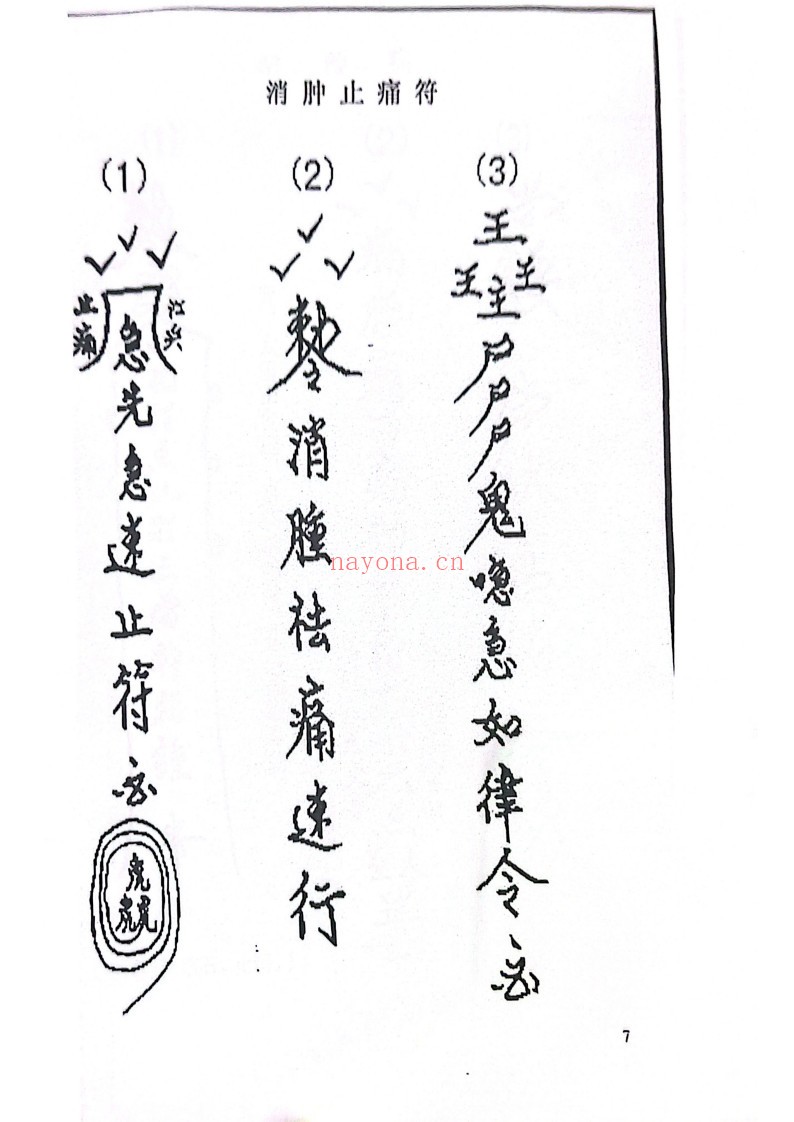 消肿止痛符
(1)
止痛
急先急速止符
虎
虎虎
(2)
敕令消腫祛痛速行
(3)
王
王主王
尸尸尸鬼
急如律令
nayona.cn
7